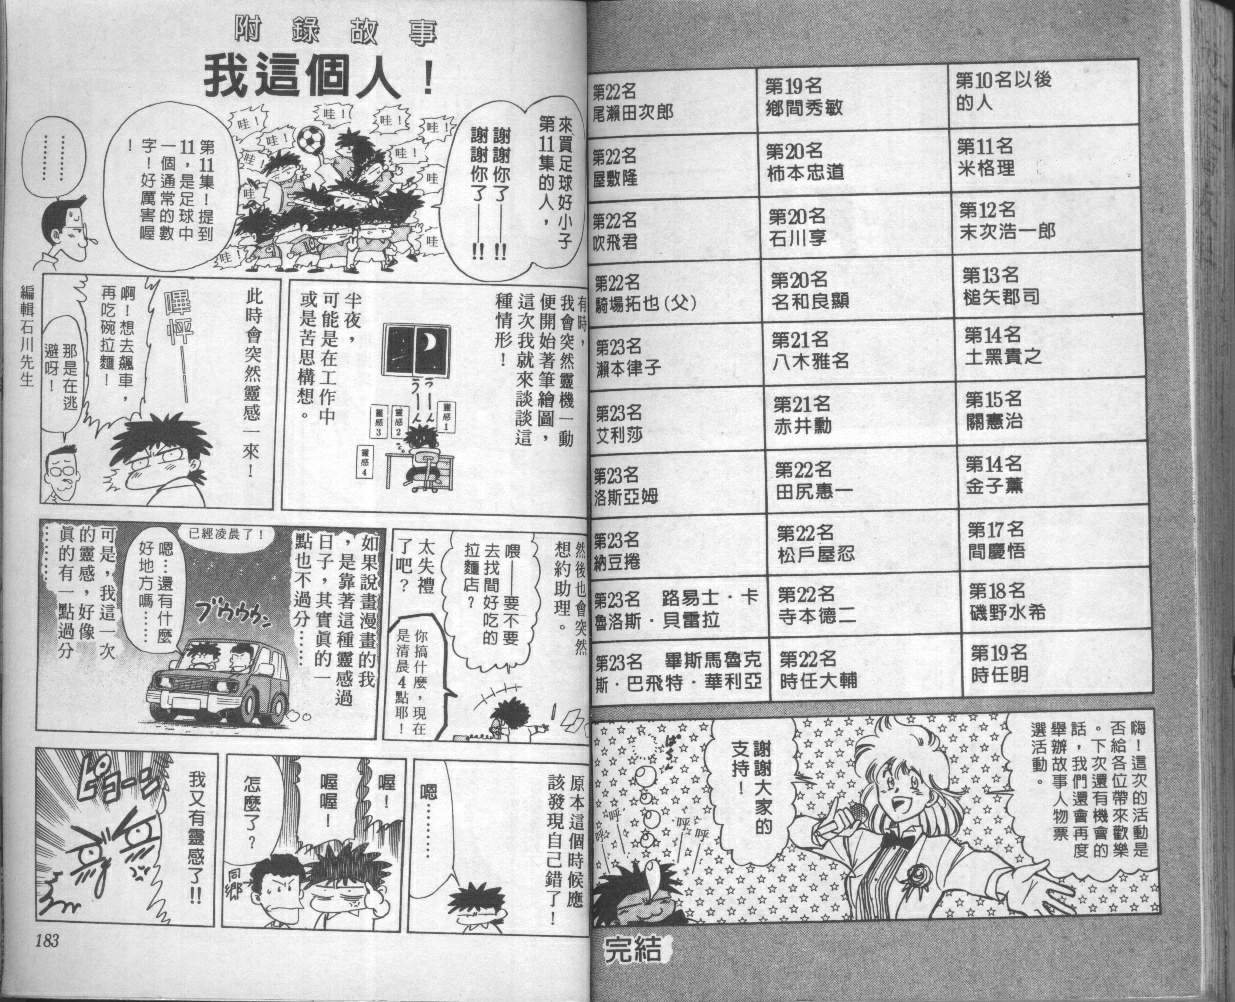 第10名以後
的人
第11名
米格理
第12名
末次浩一郎
第13名
槌矢郡司
第14名
土黑貴之
第15名
關憲治
第14名
金子薰
第17名
間慶悟
第18名
磯野水希
第19名
時任明
第19名
鄉間秀敏
第20名
柿本忠道
第20名
石川享
第20名
名和良顯
第21名
八木雅名
第21名
赤井勳
第22名
田尻惠一
第22名
松戶屋忍
第22名
寺本德二
第22名
時任大輔
第22名
尾瀨田次郎
第22名
屋敷隆
第22名
吹飛君
第22名
騎場拓也(父)
第23名
瀨本律子
第23名
艾利莎
第23名
洛斯亞姆
第23名
納豆捲
第23名 路易士・卡
魯洛斯・貝雷拉
第23名 畢斯馬魯克
斯・巴飛特・華利亞
嗨!這次的活動是
否給各位帶來歡樂
。下次還有機會的
話,我們還會再度
舉辦故事人物票
選活動。
謝謝大家的
支持!
呼
呼
呼
完結
附錄故事
我這個人!
來買足球好小子
第11集的人,
謝謝你了——!!
謝謝你了——!!
哇!
哇!
哇!
哇!
哇!
哇!
哇!
哇
哇
哇
哇!
第11集!提到
11,是足球中
一個通常的數
字!好厲害喔
!
………
編輯石川先生
有時,
我會突然靈機一動
便開始著筆繪圖,
這次我就來談談這
種情形!
半夜,
可能是在工作中
或是苦思構想。
うーん
うーん
靈感1
靈感2
靈感3
靈感4
此時會突然靈感一來!
嗶怦——
啊!想去飆車,
再吃碗拉麵!
那是在逃
避呀!
然後也會突然
想約助理。
喂——要不要
去找間好吃的
拉麵店?
太失禮
了吧?
你搞什麼,現在
是清晨4點耶!
如果說畫漫畫的我
,是靠著這種靈感過
日子,其實真的一
點也不過分……
已經凌晨了!
嗯…還有什麼
好地方嗎……
ブウウウン
可是,我這一次
的靈感,好像
真的有一點過分
………
原本這個時候應
該發現自己錯了!
嗯………
喔!
喔喔!
怎麼了?
同鄉
我又有靈感了!!
ピョーン
183